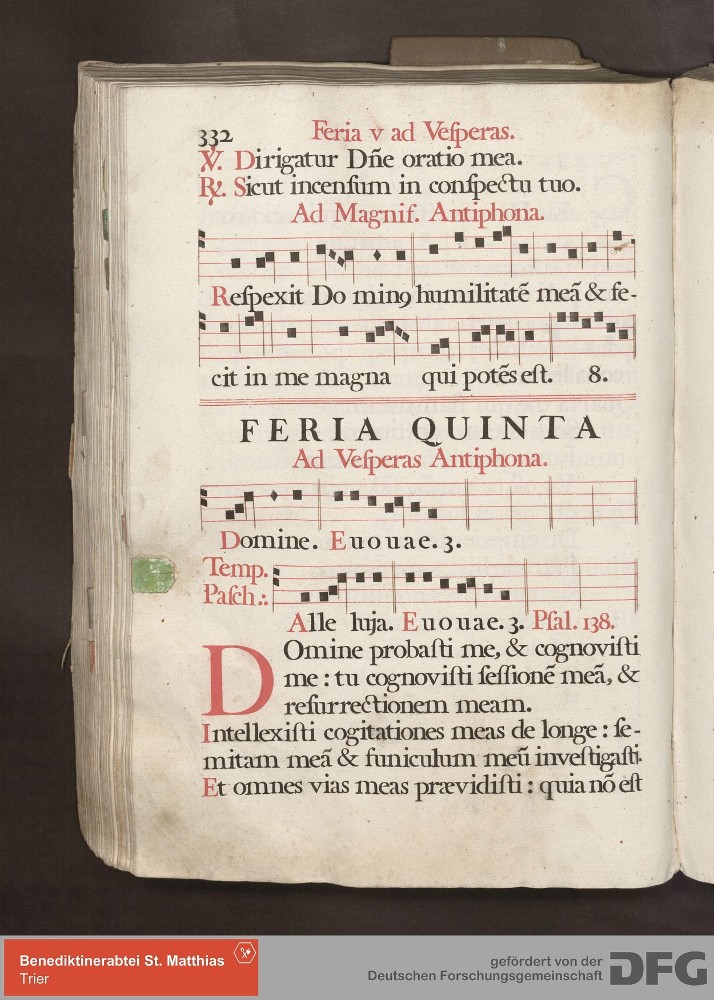 332 Feria v ad Veſperas.
℣. Dirigatur Dñe oratio mea.
℟. Sicut incenſum in conſpectu tuo.
Ad Magnif. Antiphona.
Reſpexit Do minꝰ humilitatẽ meã & fe-
cit in me magna qui potẽs eſt. 8.
FERIA QUINTA
Ad Veſperas Antiphona.
Domine. Euouae. 3.
Temp.
Paſch.:
Alle luja. Euouae. 3. Pſal. 138.
DOmine probaſti me, & cognoviſti
me : tu cognoviſti ſeſſionẽ meã, &
reſurrectionem meam.
Intellexiſti cogitationes meas de longe : ſe-
mitam meã & funiculum meũ inveſtigaſti.
Et omnes vias meas prævidiſti : quia nõ eſt
Benediktinerabtei St. Matthias
Trier
gefördert von der
Deutschen Forschungsgemeinschaft
DFG